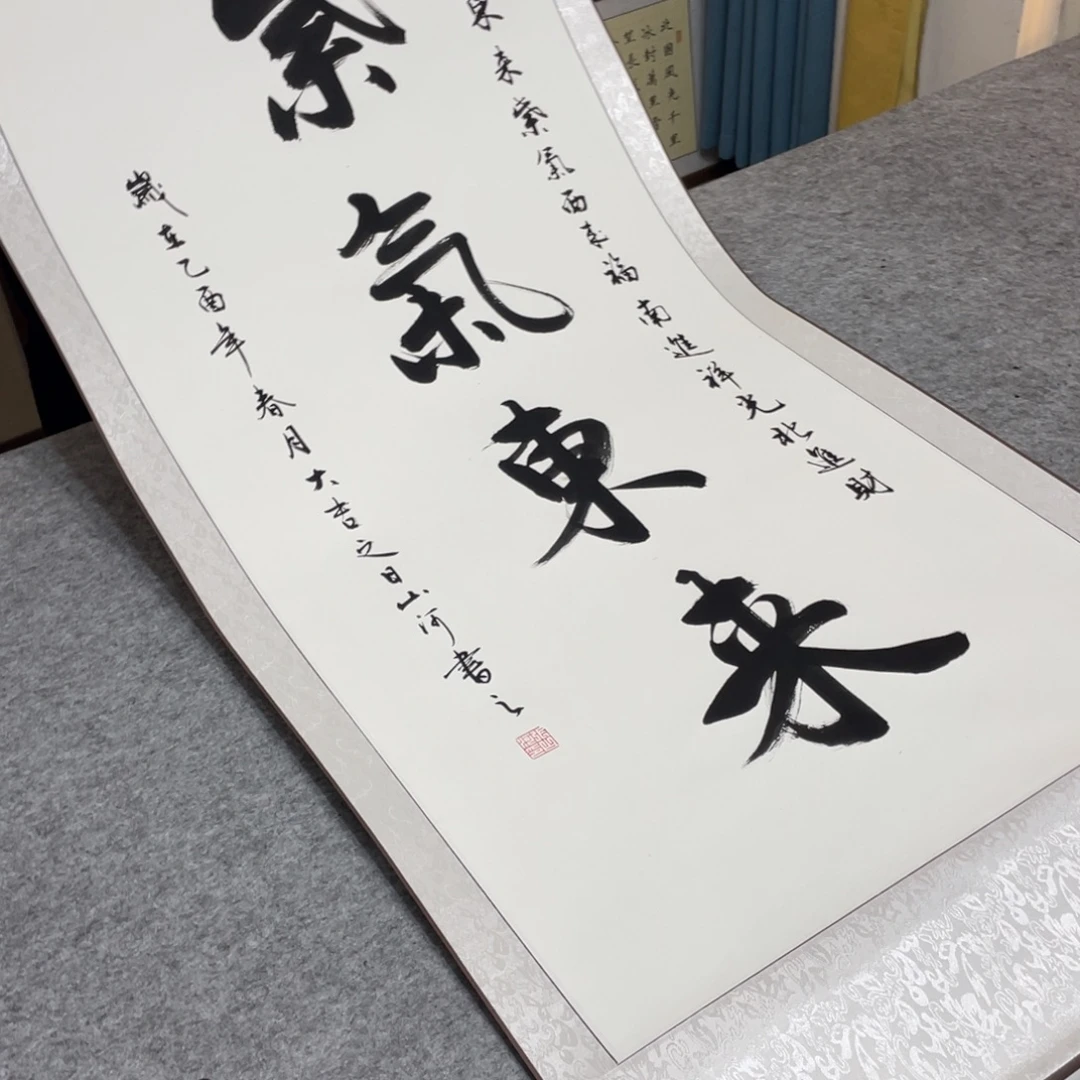 北國風光千里
冰封萬里雪
望長
東来紫氣西来福南進祥光北進財
紫氣東来
歲在乙酉年春月大吉之日山河書之